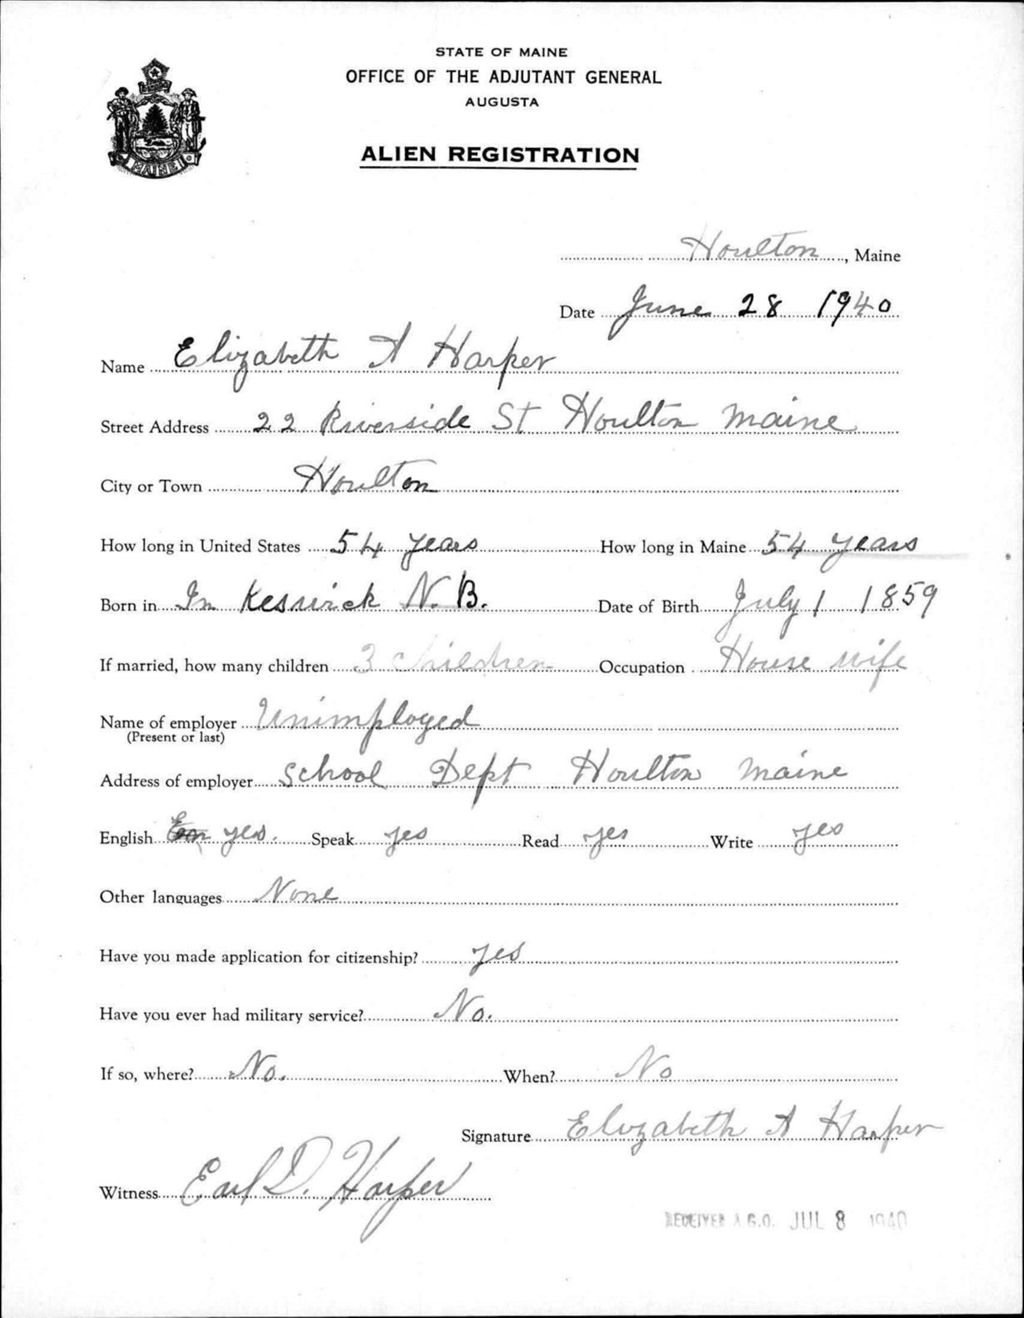 STATE OF MAINE
OFFICE OF THE ADJUTANT GENERAL
AUGUSTA
ALIEN REGISTRATION
MAINE
Houlton, Maine
Date June 28 1940
Name Elizabeth A Harper
Street Address 22 Riverside St Houlton Maine
City or Town Houlton
How long in United States 54 years How long in Maine 54 years
Born in In Keswick N.B. Date of Birth July 1 1859
If married, how many children 3 children Occupation House wife
Name of employer Unimployed
(Present or last)
Address of employer School Dept Houlton Maine
English yes. Speak yes Read yes Write yes
Other languages None
Have you made application for citizenship? yes
Have you ever had military service? No.
If so, where? No. When? No
Signature Elizabeth A Harper
Witness Earl D. Harper
RECEIVED A.G.O. JUL 8 1940